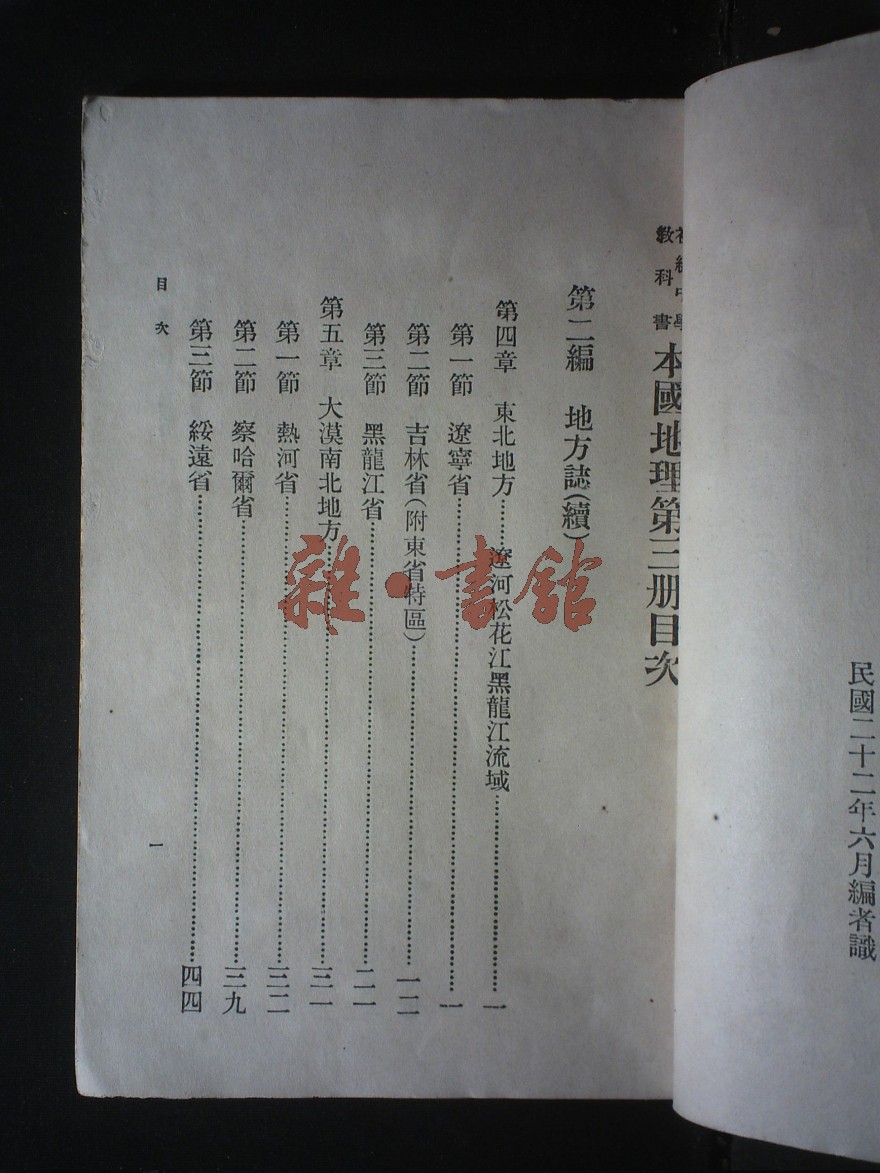 民國二十二年六月編者識
初級中學
教科書
本國地理第三册目次
第二編　地方誌(續)
第四章　東北地方……遼河松花江黑龍江流域……一
第一節　遼寧省……一
第二節　吉林省(附東省特區)……一二
第三節　黑龍江省……二一
第五章　大漠南北地方……三一
第一節　熱河省……三二
第二節　察哈爾省……三九
第三節　綏遠省……四四
目次
一
雜·書館